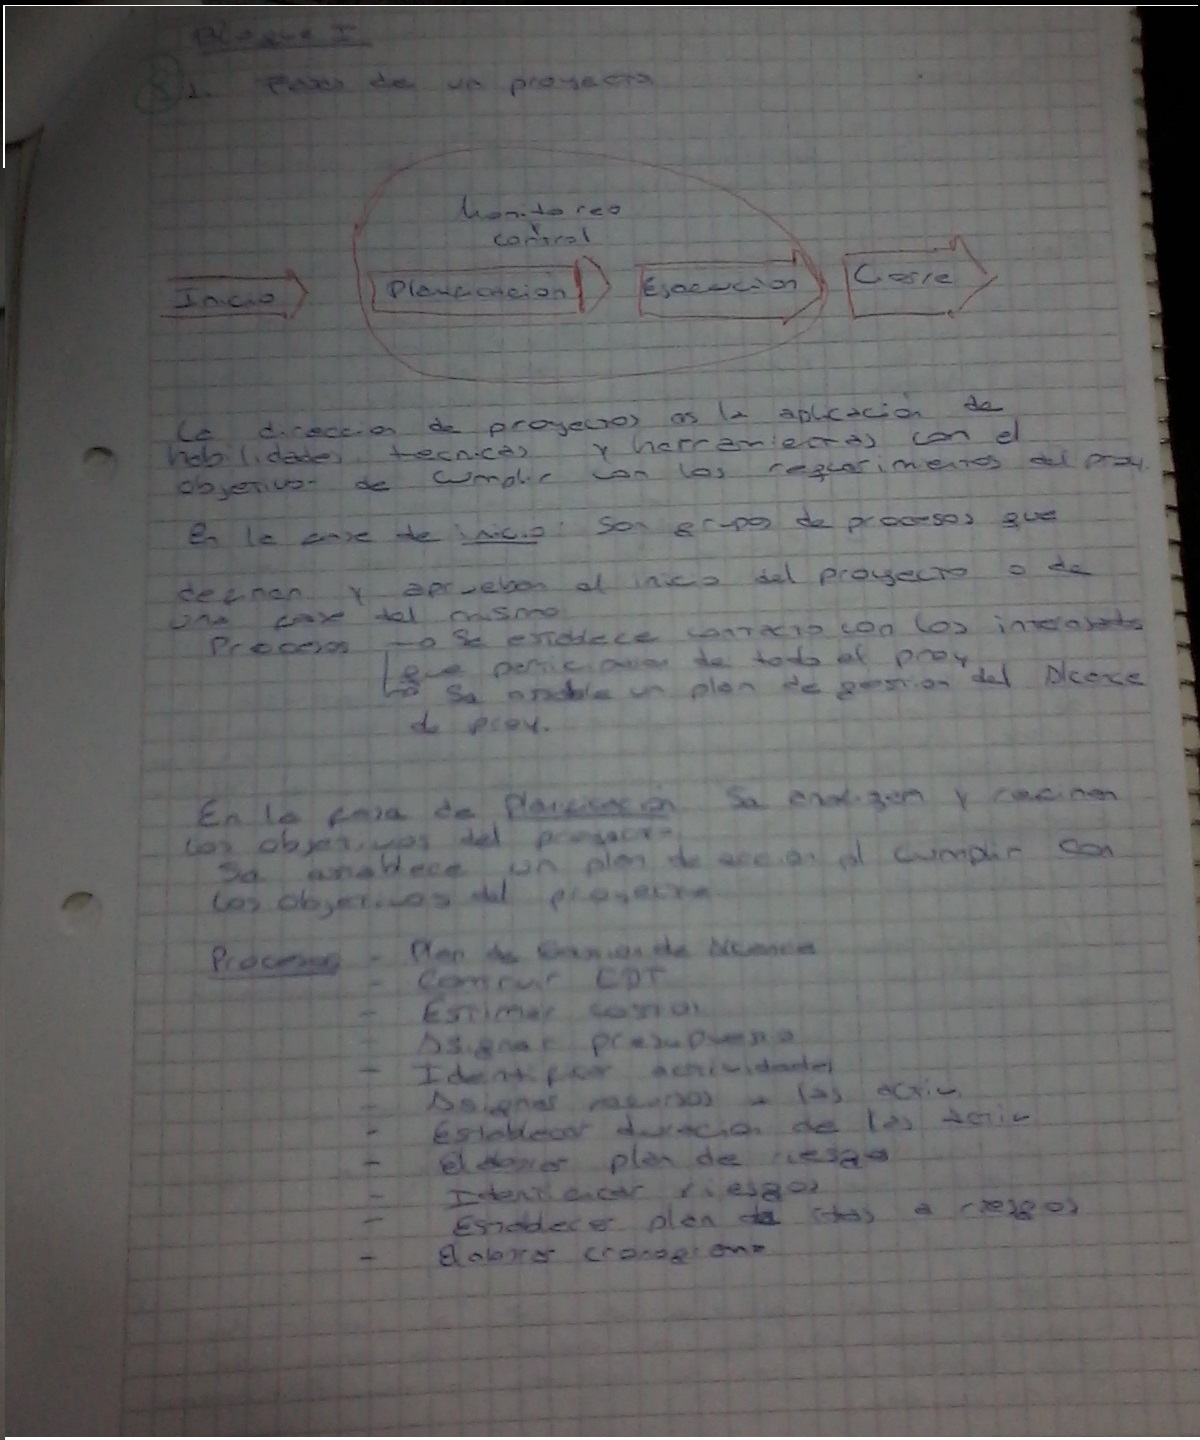 Bloque I
1. Fases de un proyecto
Monitoreo
y
control
Inicio
Planificacion
Ejecucion
Cierre
La direccion de proyectos es la aplicación de
habilidades, tecnicas y herramientas con el
objetivo de cumplir con los requerimientos del proy.
En la fase de inicio: Son grupos de procesos que
definen y aprueban el inicio del proyecto o de
una fase del mismo
Procesos → Se establece contacto con los interesados
que participaran de todo el proy
→ Se establece un plan de gestion del Alcance
de proy.
En la fase de Planificación Se analizan y definen
los objetivos del proyecto
Se establece un plan de accion al cumplir con
los objetivos del proyecto
Procesos - Plan de Gestion de Alcance
- Construir EDT
- Estimar costos
- Asignar presupuesto
- Identificar actividades
- Asignar recursos a las activ.
- Establecer duracion de las activ
- Elaborar plan de riesgo
- Identificar riesgos
- Establecer plan de a riesgos
- Elaborar cronograma